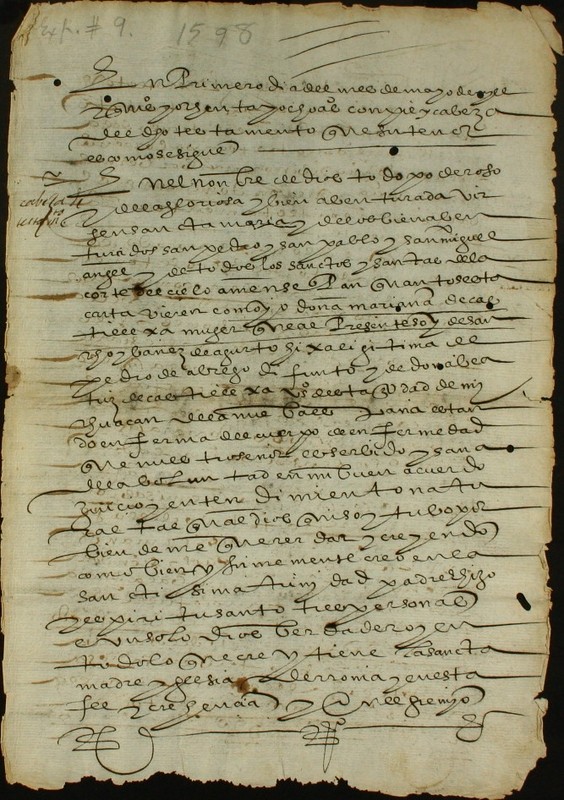 Exp. # 9. 1598
En Primero dia del mes de mayo de mill
e quis y ochenta y ocho as con pie y cabeza
del dho testamento que su tenor
es como se sigue
cabeza de
En el nonbre de dios todo poderoso
y de la gloriosa y bien abenturada vir
gen santa maria y de los bien aben
turados san pedro y san pablo y san miguel
angel y de todos los sanctos y santas de la
corte del cielo amen sepan quantos esta
carta vieren como yo doña mariana de cas
tillexa muger que al presente soy de san
cho ybañez de agurto hixa ligitima de
pedro de abrego difunto y de doña bea
triz de castillexa vs desta ciudad de me
chuacan de la nueba españa estan
do enferma del cuerpo de enfermedad
que nuestro señor es serbido y sana
de la boluntad en mi buen acuerdo
juicio y entendimiento natu
ral tal qual dios quiso y tubo por
bien de me querer dar y creyendo
como bien y firmemente creo en la
santisima trinydad padre hijo
y espiritu santo tres personas
e un solo dios berdadero y en
todo lo que cre y tiene la sancta
madre yglesia de rroma y en esta
fee y crehencia